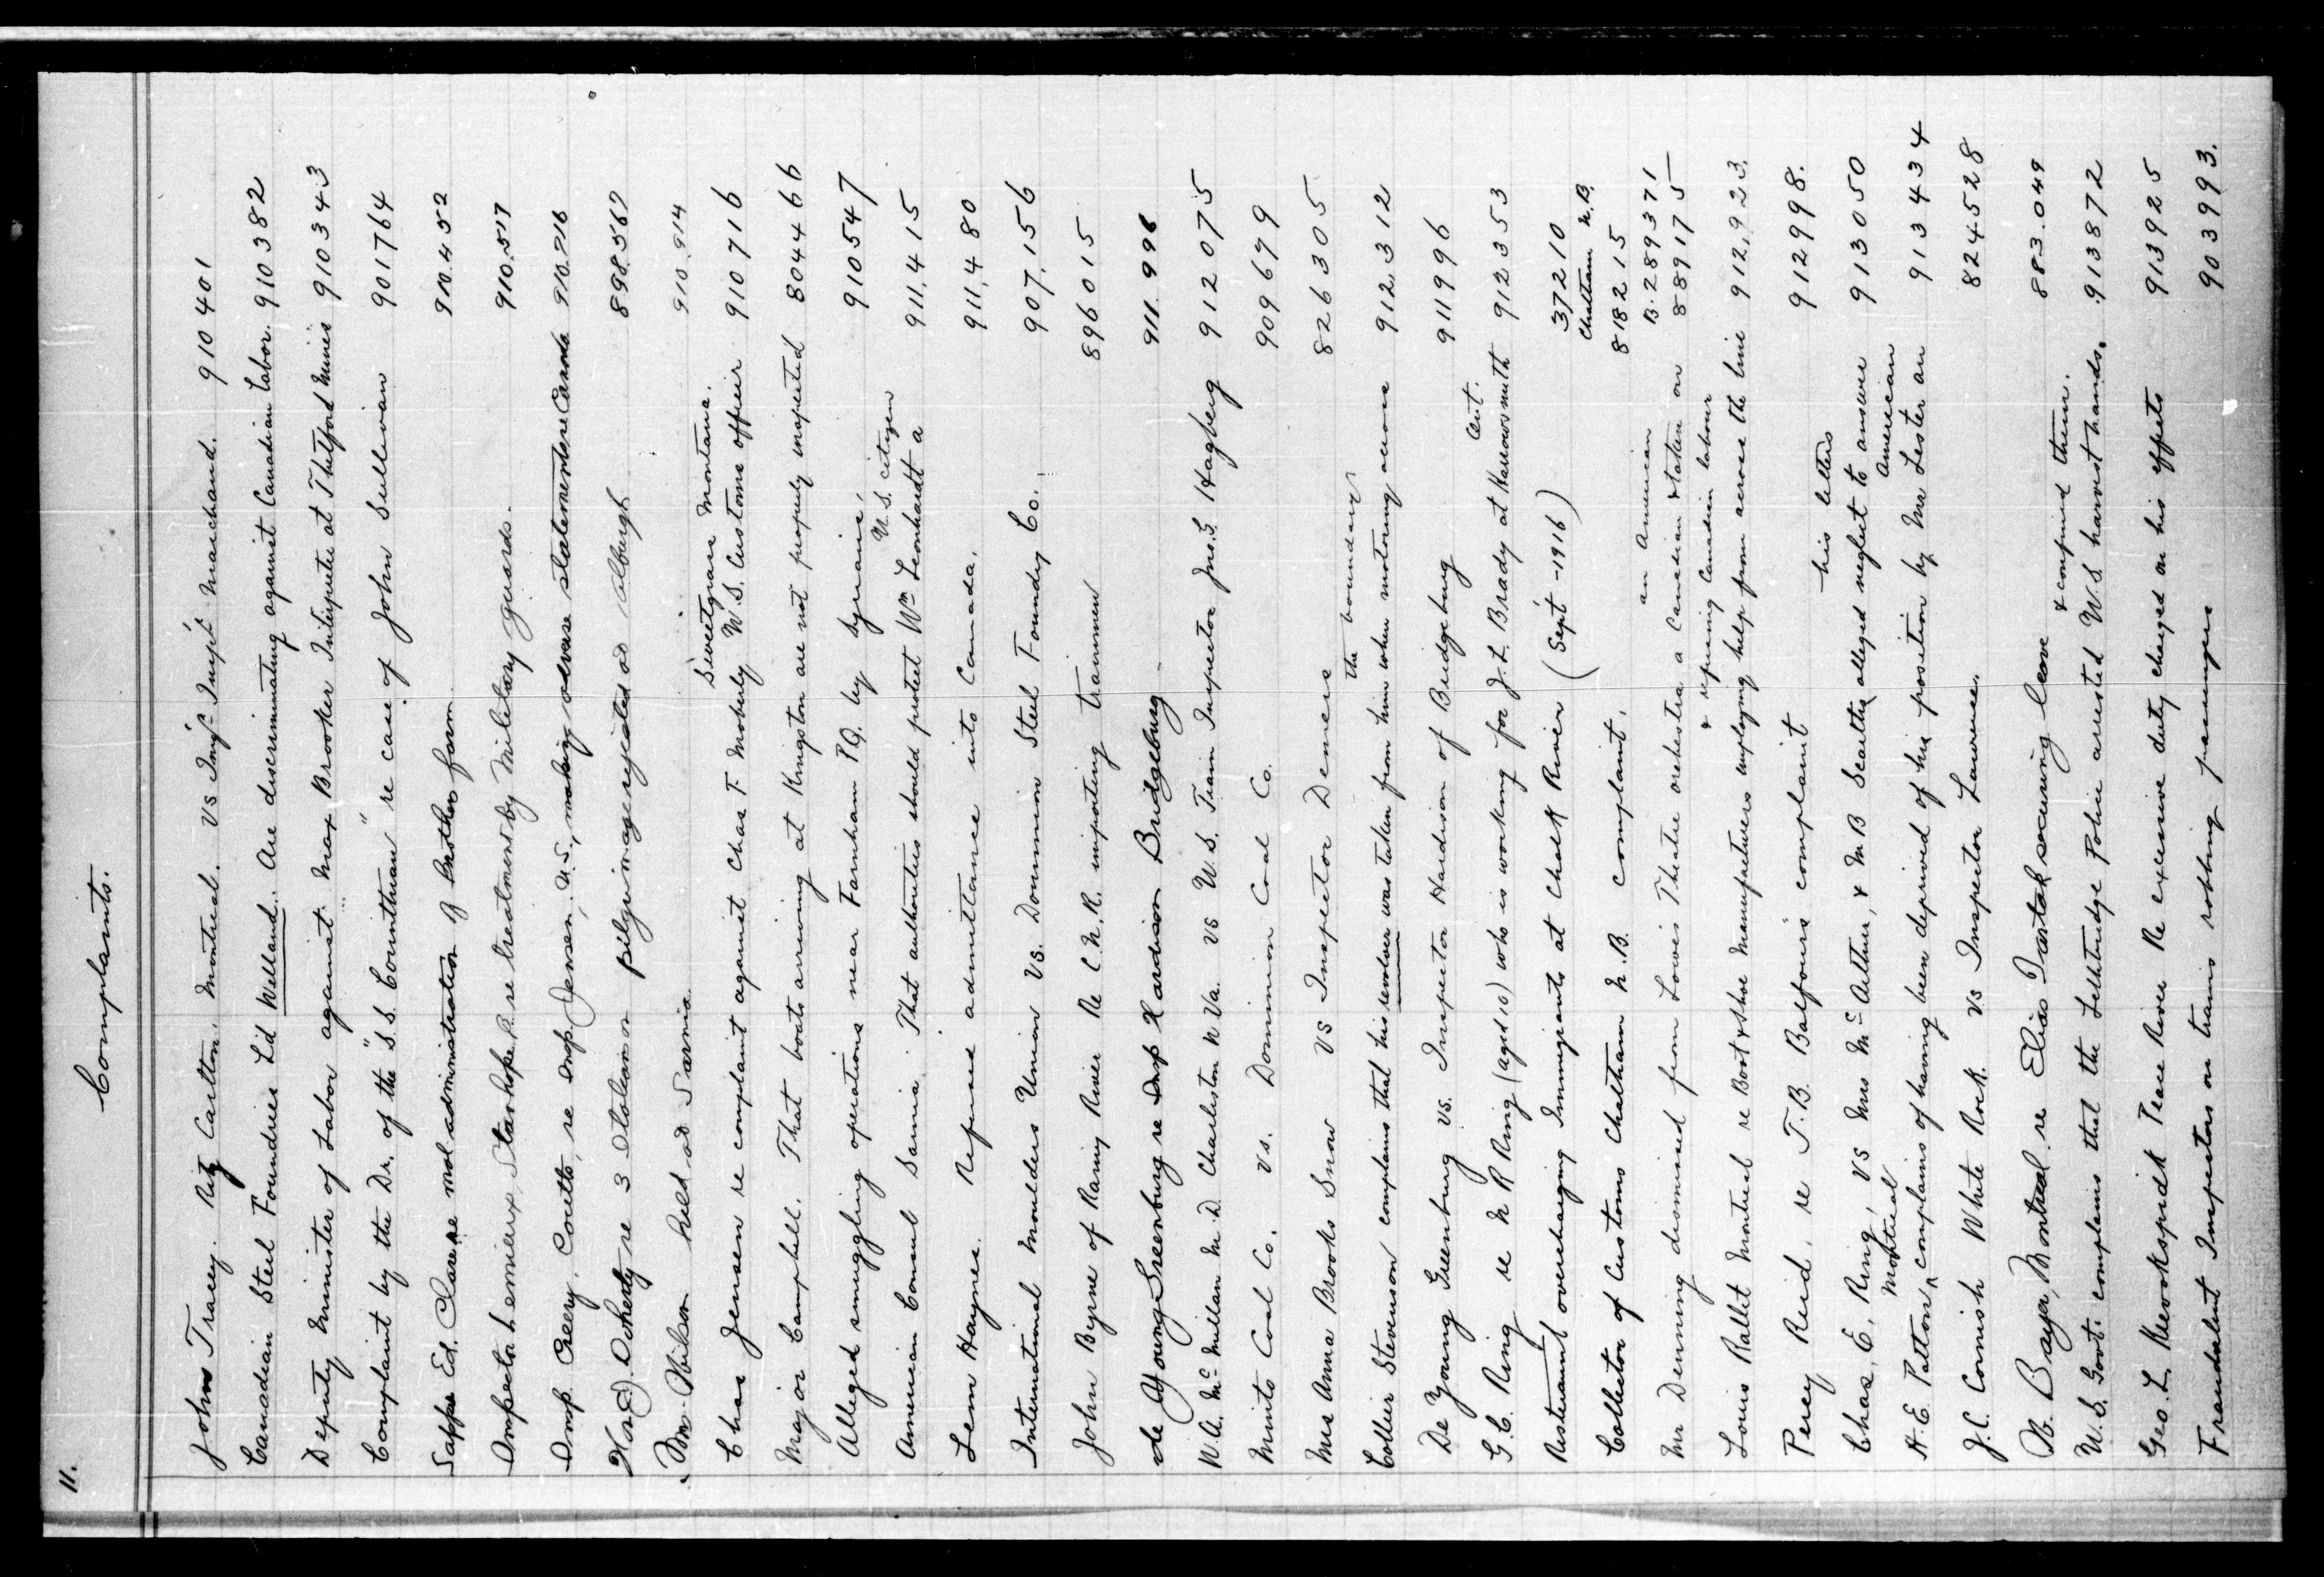 11.
Complaints.
John Tracey. Ritz Carlton. Montreal. Vs Imgn Inspr Marchand. 910401
Canadian Steel Foundries Ltd Welland. Are discriminating against Canadian Labor. 910382
Deputy Minister of Labor against Max Brooker Interpreter at Thetford Mines 910343
Complaint by the Dr. of the "S.S. Corinthian" re case of John Sullivan 901764
Ed. Clare re mal administration of Brothers farm 910.452
Inspector Lemieux, Stanhope P.Q. re treatment by Military guards. 910.517
Insp. Creery, Coutts, re Insp. Jensen, U.S., making adverse statements re Canada 910.716
Hon J. Doherty re 3 Italian pilgrimage rejected at Alburgh 898.567
Wm. Wilson held at Sarnia. 910.914
Sweetgrass Montana.
Chas Jensen re complaint against Chas F. Moberly U.S. Customs officer 910716
Major Campbell. That boats arriving at Kingston are not properly inspected 804466
Alleged smuggling operations near Farnham P.Q. by Syrians. 910547
U.S. citizen
American Consul Sarnia. That authorities should protect Wm Leonhardt a 911,415
Lem Haynes. Refused admittance into Canada. 911,480
International Moulders Union Vs. Dominion Steel Foundry Co. 907,156
John Byrne of Rainy River Re C.N.R. importing trainmen 896015
de Young Greenburg re Insp Hardison Bridgeburg 911.996
W.A. McMillan M.D. Charleston W Va. vs U.S. Train Inspector Jno. G. Hagberg 912075
Minto Coal Co. Vs. Dominion Coal Co. 909679
Mrs Anna Brooks Snow vs Inspector Demers 826305
the boundary
Collier Stevenson complains that his revolver was taken from him when motoring across 912,312
De Young Greenburg vs. Inspector Hardison of Bridgeburg 911996
Ont.
G.C. Ring re N R Ring (aged 10) who is working for J.L. Brady at Harrowsmith 912353
Restaurant overcharging Immigrants at Chalk River (Sept - 1916) 37210
Chatham N.B.
Collector of Customs Chatham N.B. complaint. 818215
an American B. 289371
Mr Denning dismissed from Loews Theatre orchestra a Canadian & taken on 889175
& refusing Canadian labour
Louis Rallet Montreal re Boot & Shoe Manufacturers employing help from across the line 912,923.
Percy Reid, re T.B. Balfours complaint 912998.
his letters
Chas. E. Ring, vs Mrs McArthur, & M B Scarth alleged neglect to answer 913050
Montreal American
H.E. Patton complains of having been deprived of his position by Mr Lester an 913434
J.C. Cornish White Rock vs Inspector Lawrence. 824528
W. Bayer, Montreal, re Elias securing leave 883.049
& confined them.
U.S. Govt. complains that the Lethbridge Police arrested U.S. harvest hands. 913872
Geo. L. Peace River Re excessive duty charged on his effects 913925
Fraudulent Inspectors on trains robbing passengers 903993.